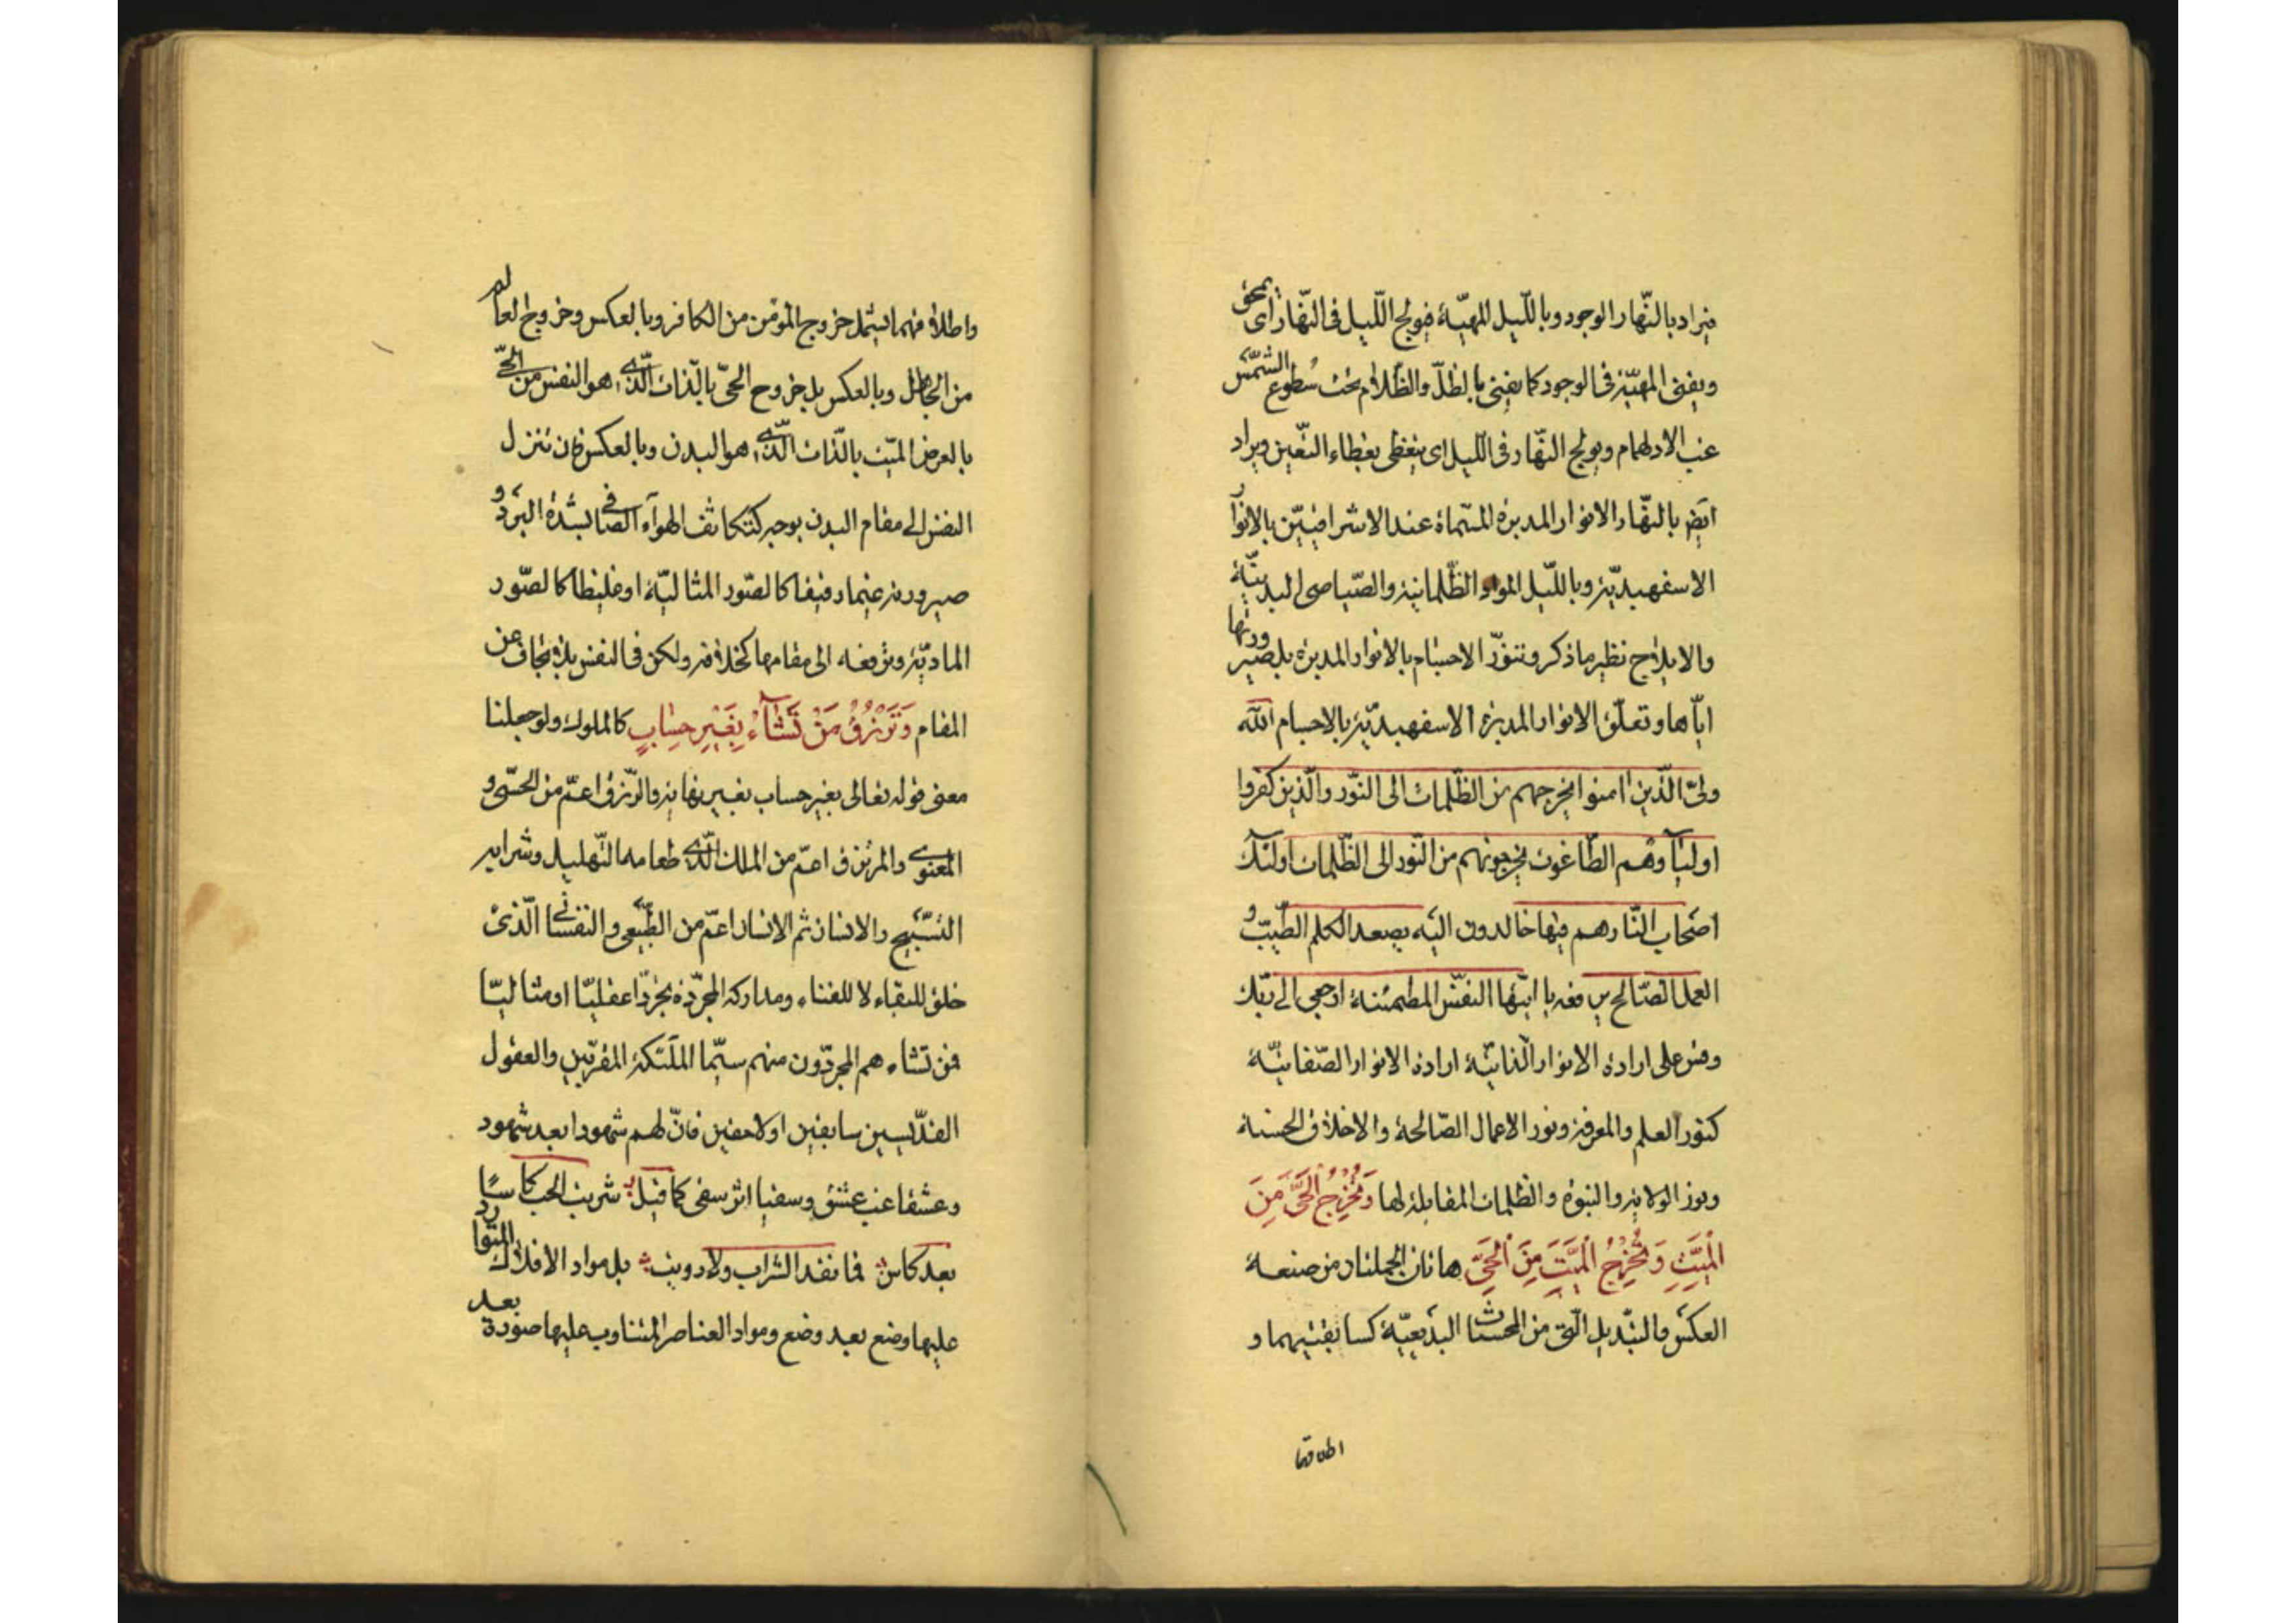 فيراد بالنّهار الوجود وبالليل المهيّة فيولج اللّيل فى النّهار اى يمحق
ويفنى المهيّة فى الوجود كما يفنى بالظلّ والظّلام تحت سطوع الشّمس
غب الادلهمام ويولج النّهار فى اللّيل اى يتغطى بغطاء التّعين ويراد
ايض بالنّهار الانوار المدبرة المسّماة عند الاشراقيّين بالانوار
الاسفهبديّة وباللّيل المواد الظّلمانية والصّياصى البدنيّة
والايلاج نظير ما ذكر وتنوّر الاجسام بالانوار المدبرة بل صيرورتها
ايّاها وتعلّق الانوار المدبرة الاسفهبديّة بالاجسام اللّه
ولىّ الّذين امنوا يخرجهم من الظّلمات الى النّور والّذين كفروا
اولياؤهم الطّاغوت يخرجونهم من النّور الى الظّلمات اولئك
اصحاب النّار هم فيها خالدون اليه يصعد الكلم الطّيّب و
العمل الصّالح يرفعه يا ايّتها النفس المطمئنة ارجعى الى ربّك
وقس على ارادة الانوار الذاتيّة ارادة الانوار الصّفاتيّة
كنور العلم والمعرفة ونور الاعمال الصّالحة والاخلاق الحسنة
ونور الولاية والنبوة والظلمات المقابلة لها وَتُخْرِجُ الْحَىَّ مِنَ
الْمَيِّتِ وَتُخْرِجُ الْمَيِّتَ مِنَ الْحَىِّ هاتان الجملتان من صنعة
العكس والتّبديل الّتى من المحسّنات البديعيّة كسابقتيهما و
اطلاقها
واطلاقهما يشمل خروج المؤمن من الكافر وبالعكس وخروج العالم
من الجاهل وبالعكس بل خروج الحىّ بالّذات الّذى هو النفس من الحىّ
بالعرض الميّت بالذّات الّذى هو البدن وبالعكس فان تنزل
النفس الى مقام البدن بوجه كتكاثف الهوآء الصّافى لشدّة البرد و
صيرورته غيما رقيقا كالصّور المثاليّة او غليظا كالصّور
الماديّة وترفعه الى مقامها كخلافه ولكن فى النفس بلا تجاف عن
المقام وَتَرْزُقُ مَنْ تَشَآءُ بِغَيْرِ حِسَابٍ كالملوك ولو جعلنا
معنى قوله تعالى بغير حساب بغير نهاية والرّزق اعمّ من الحسّى و
المعنوى والمرتزق اعمّ من الملك الّذى طعامه التّهليل وشرابه
التسّبيح والانسان ثم الانسان اعمّ من الطّبيعى والنفسانى الّذى
خلق للبقاء لا للفناء ومداركه المجرّدة تجرّدا عقليّا او مثاليّا
فمن تشاء هم المجرّدون منهم سيّما الملئكة المقرّبين والعقول
القدّيسين سابقين او لاحقين فانّ لهم شهودا بعد شهود
وعشقا غب عشق وسقيا اثر سقى كما قيل شربت الحب كاسًا
بعد كاس فما نفد الشراب ولا رويت بل مواد الافلاك المتوارد
عليها وضع بعد وضع ومواد العناصر المتناوب عليها صورة بعد